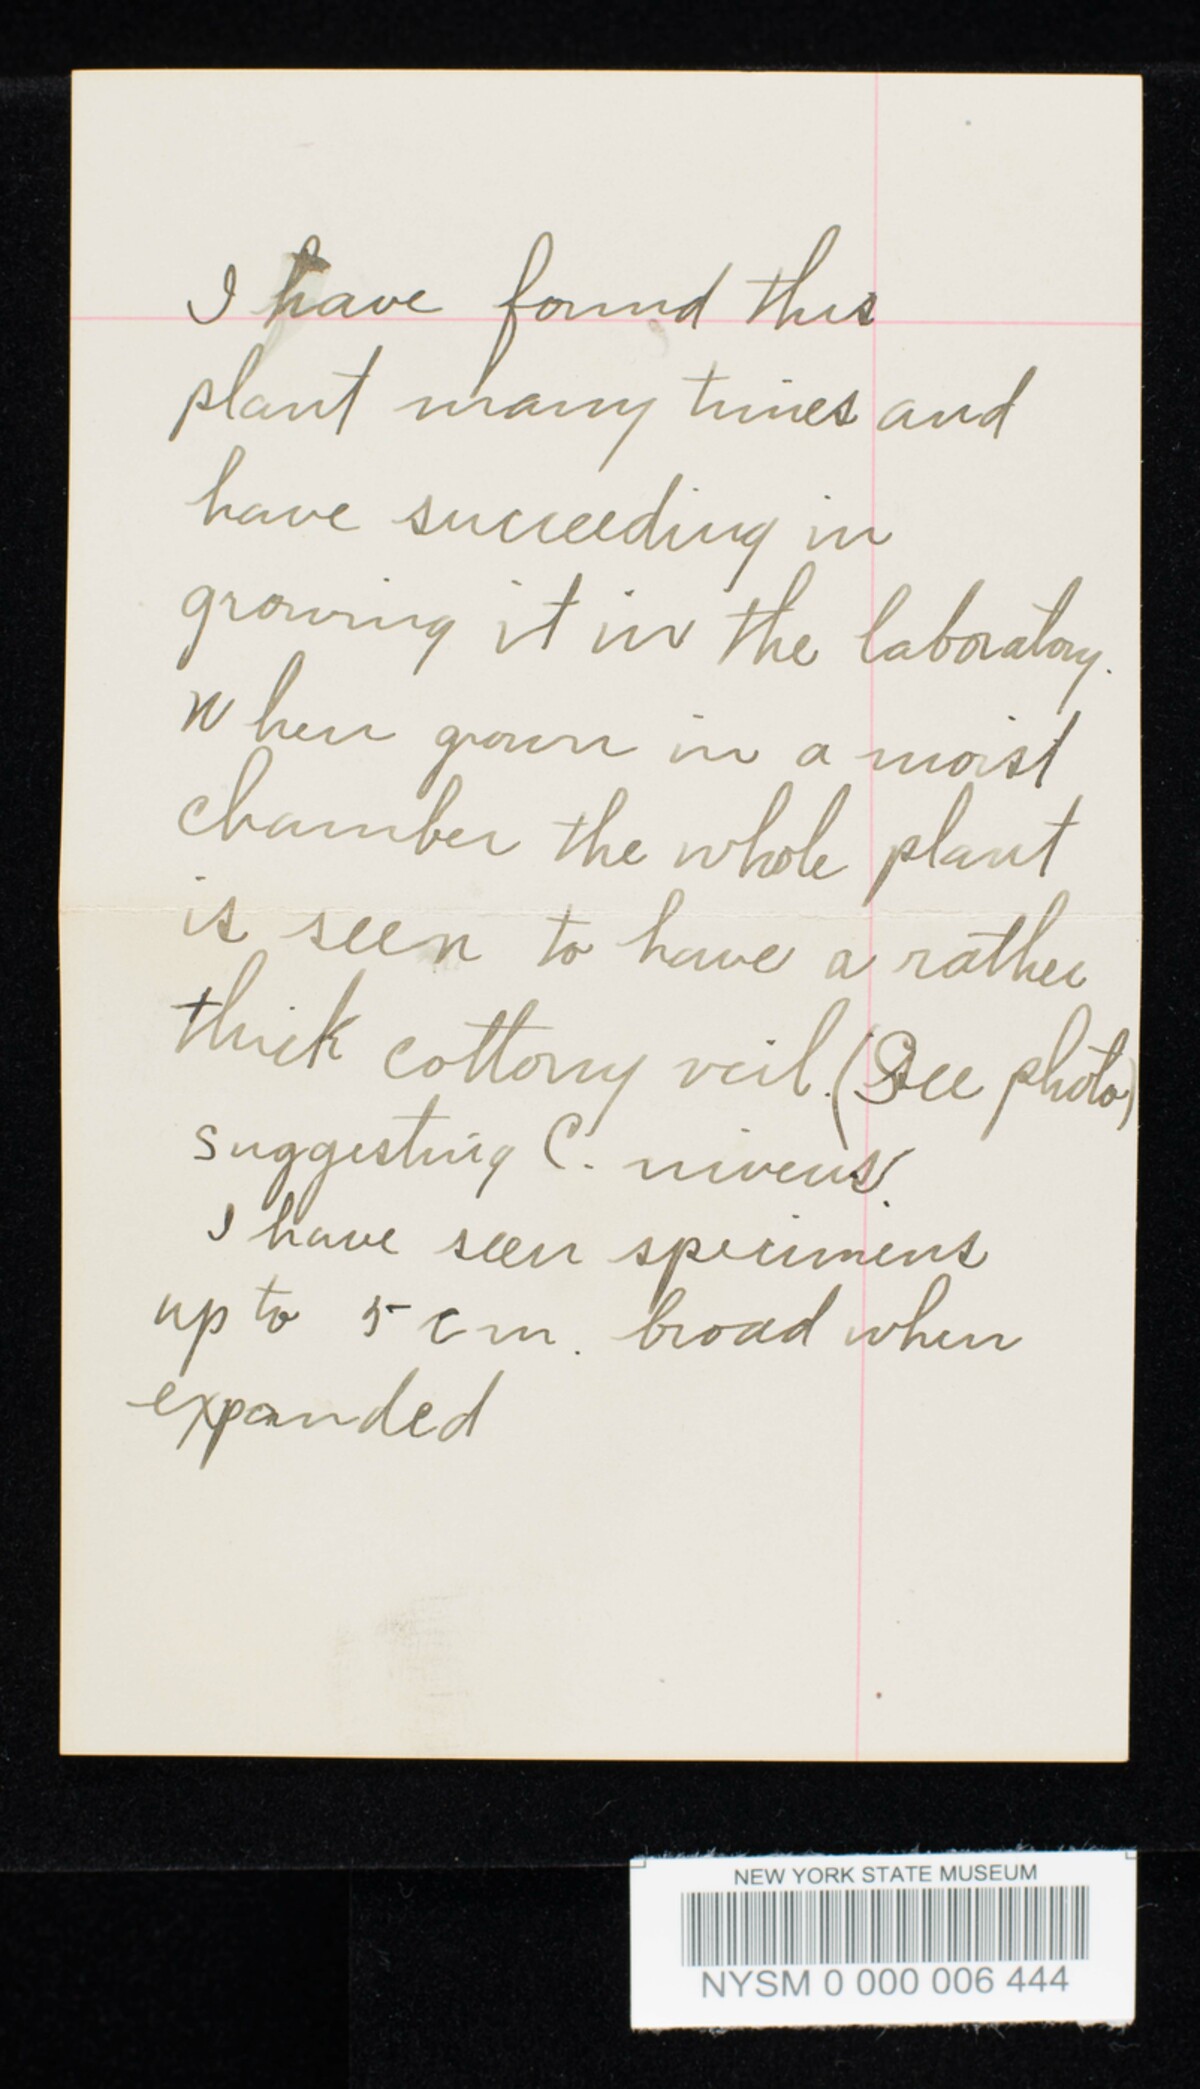 I have found this
plant many times and
have succeeding in
growing it in the laboratory.
When grown in a moist
chamber the whole plant
is seen to have a rather
thick cottony veil. (See photo)
suggesting C. niveus.
I have seen specimens
up to 5 cm. broad when
expanded
NEW YORK STATE MUSEUM
NYSM 0 000 006 444